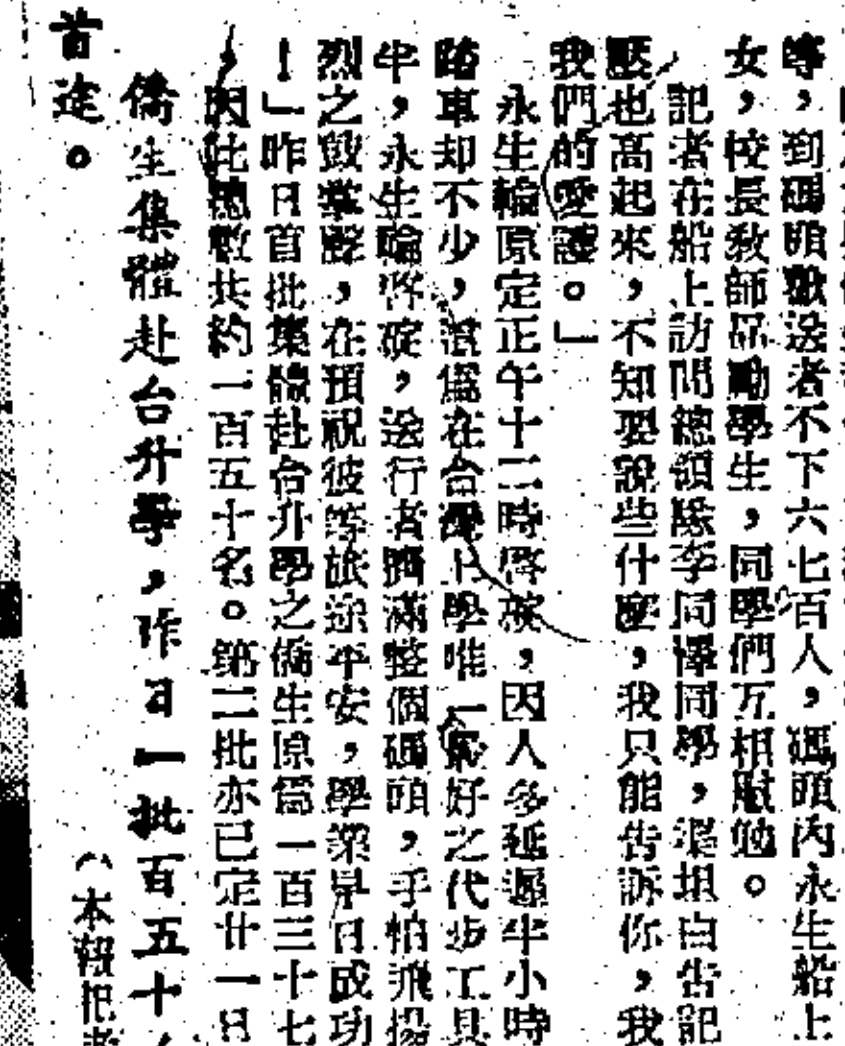 等，到碼頭歡送者不下六七百人，碼頭內永生船上
女，校長教師品勵學生，同學們互相慰勉。
記者在船上訪問總領隊李同學，渠坦白告記
壓也高起來，不知要說些什麼，我只能告訴你，我
我們的愛護。」
永生輪原定正午十二時啓碇，因人多延遲半小時
踏車却不少，當爲在台灣上學唯一最好之代步工具
牛，永生輪啓碇，送行者擠滿整個碼頭，手帕飛揚
烈之鼓掌聲，在預祝彼等旅途平安，學業早日成功
！」昨日首批集體赴台升學之僑生原爲一百三十七
，因此總數共約一百五十名。第二批亦已定廿一日
首途。
僑生集體赴台升學，昨日一批百五十
（本報記者